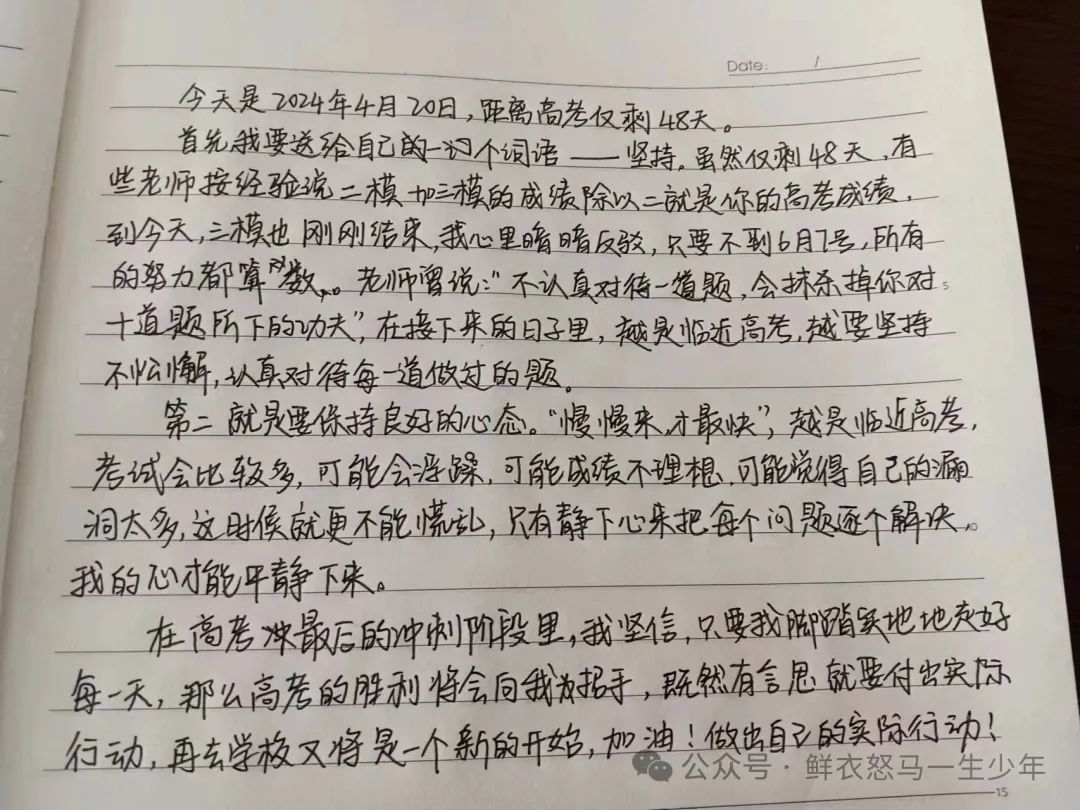 Date: /
今天是2024年4月20日,距离高考仅剩48天。
首先我要送给自己的一个词语——坚持。虽然仅剩48天,有
些老师按经验说二模加三模的成绩除以二就是你的高考成绩,
到今天,三模也刚刚结束,我心里暗暗反驳,只要不到6月7号,所有
的努力都算数。老师曾说:“不认真对待一道题,会抹杀掉你对
5
十道题所下的功夫”,在接下来的日子里,越是临近高考,越要坚持
不松懈,认真对待每一道做过的题。
第二就是要保持良好的心态。“慢慢来,才最快”,越是临近高考,
考试会比较多,可能会浮躁,可能成绩不理想,可能觉得自己的漏
洞太多,这时候就更不能慌乱,只有静下心来把每个问题逐个解决,
10
我的心才能平静下来。
在高考冲最后的冲刺阶段里,我坚信,只要我脚踏实地地走好
每一天,那么高考的胜利将会向我招手,既然有言思就要付出实际
行动,再去学校又将是一个新的开始,加油!做出自己的实际行动!
公众号·鲜衣怒马一生少年
15